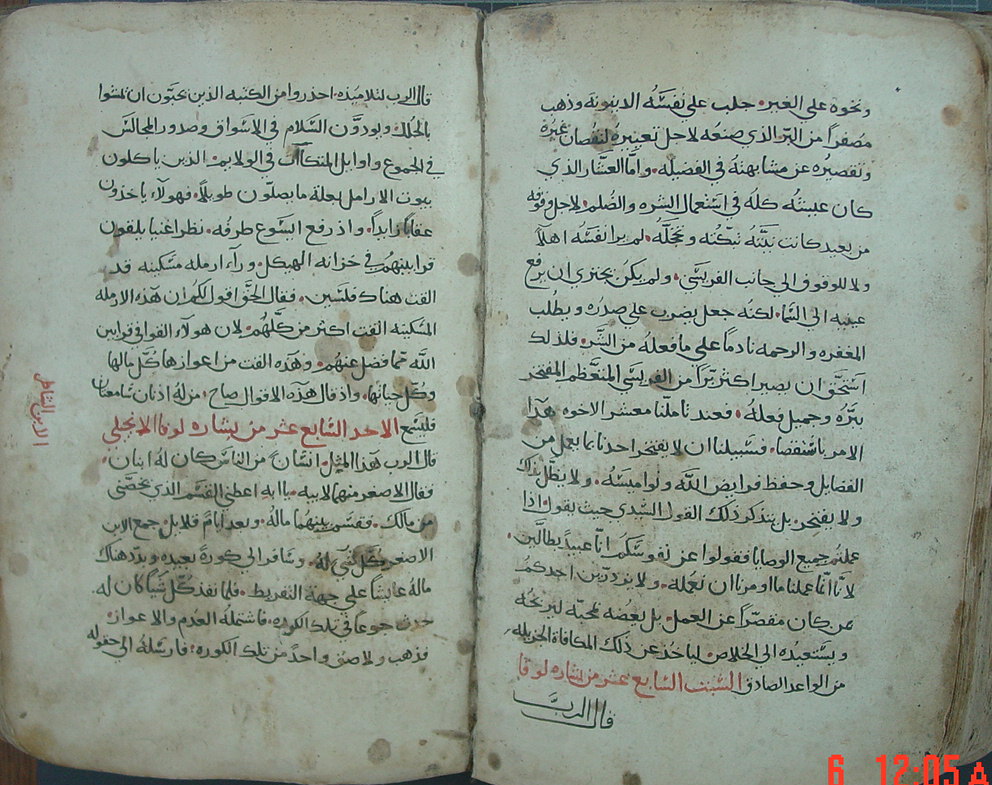 ونحوه على الغير. جلب على نفسه الدينونه وذهب
مصفرًا من البر الذي صنعه لاجل تعييره لنقصان غيره
وتقصيره عن مشابهته في الفضيله. واما العشار الذي
كان عيشته كله في استعمال الشره والظلم. لاجل وقوفه
من بعيد كانت نيته تبكته وتخجله. لم يرا نفسه اهلاً
ولا للوقوف الى جانب الفريسي. ولم يكن يجترى ان يرفع
عينيه الى السما. لكنه جعل يضرب على صدره ويطلب
المغفره والرحمه نادمًا على ما فعله من الشر. فلذلك
استحق ان يصير اكثر برًا من الفريسي المتعظم المفتخر
ببره وجميل فعله. فعند تاملنا معشر الاخوه هذا
الامر باستقصا. فسبيلنا ان لا يفتخر احدنا بما يعمل من
الفضايل وحفظ فرايض الله ونواميسه. ولا يظن بذلك
ولا يفتخر. بل يتذكر ذلك القول السيدي حيث يقول اذا
عملتم جميع الوصايا فقولوا عن نفوسكم انّا عبيدًا بطالين.
لانّا انّما عملنا ما اومرنا ان نعمله. ولا يزدرين احدكم
بمن كان مقصرًا عن العمل. بل يعضه بمحبه ليربحه
ويستعيده الى الخلاص ليأخذ عن ذلك المكافاة الجزيله
من الواعد الصادق السبت السابع عشر من بشاره لوقا
قال الرب
قال الرب لتلاميذه. احذروا من الكتبه الذين يحبون ان يمشوا
بالحلل. ويودون السلام في الاسواق وصدور المجالس
في الجموع واوايل المتكاآت في الولايم. الذين ياكلون
بيوت الارامل بعلة ما يصلون طويلاً. فهولاء ياخذون
عقابًا زايدًا. واذ رفع ايسوع طرفه. نظر اغنيا يلقون
قرابينهم في خزانه الهيكل. ورآء ارمله مسكينه قد
القت هناك فلسين. فقال الحق اقول لكم ان هذه الارمله
المسكينه القت اكثر من كلهم. لان هولاء القوا في قرابين
الله مما فضل عنهم. وهذه القت من اعوازها كل مالها
وكل حياتها. واذ قال هذه الاقوال صاح. من له اذنان سامعتان
فليسمع الاحد السابع عشر من بشاره لوقا الانجلي
قال الرب هذا المثل. انسانٌ من الناس كان له ابنان.
فقال الاصغر منهما لابيه. يا ابه اعطني القسم الذي يخصني
من مالك. فقسم بينهما ماله. وبعد ايام قلايل جمع الابن
الاصغر كل شي له. وسافر الى كورةً بعيده وبدد هناك
ماله عايشًا على جهة التفريط. فلما نفد كل شيا كان له.
حدث جوعًا في تلك الكوره. فاشتمله العدم والاعواز.
فذهب ولاصق واحدًا من تلك الكوره. فارسله الى حقوله
الابن الشاطر